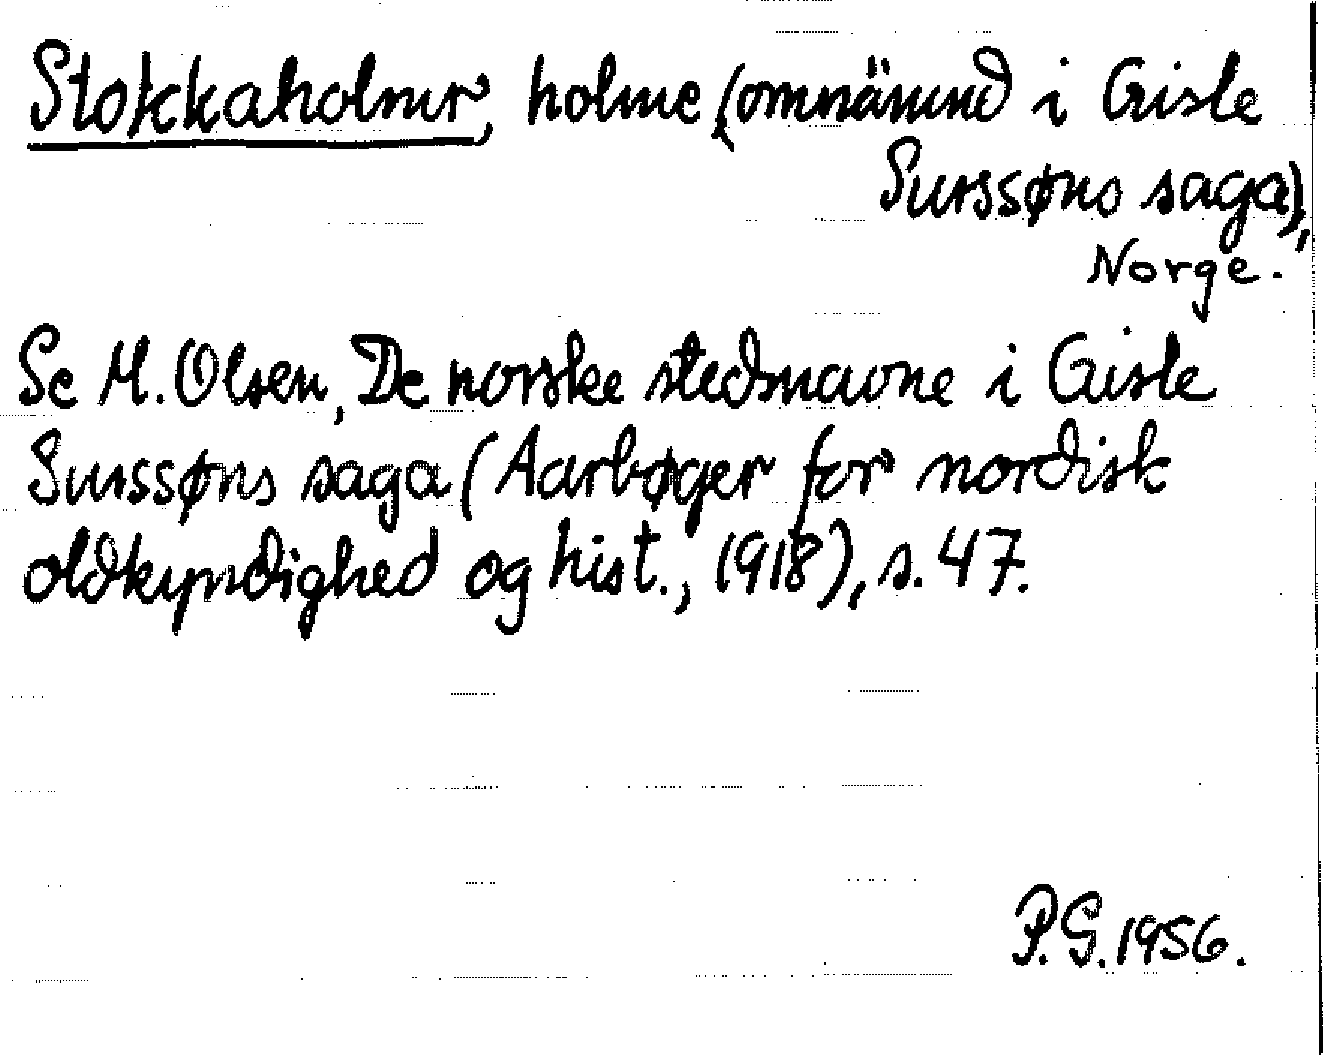 Stokkaholmr, holme (omnämnd i Gisle
Surssøns saga),
Norge.
Se M. Olsen, De norske stedsnavne i Gisle
Surssøns saga (Aarbøger for nordisk
oldkyndighed og hist., 1918), s. 47.
P.G. 1956.